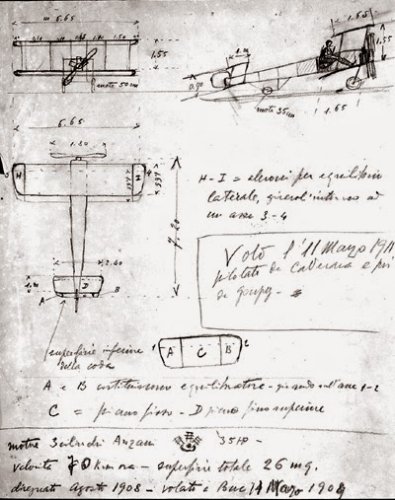 6.65
1.65
1.50
1.55
1.55
1.55
ruote 50 cm
ruote 35 cm
6.65
1.80
H
H
4
H-I = elevoni per equilibrio
laterale, girevoli intorno ad
un asse 3-4
7.20
Volò l'11 Marzo 19
pilotato da Calderara e poi
da
2.60
D
A
B
superficie inferiore
della coda
1
A
C
B
2
A e B costituiscono equilibratore - girando sull'asse 1-2
C = piano fisso - D piano fisso superiore
motore 3 cilindri Anzani 35 HP -
velocità 70 km ora - superficie totale 26 mq.
disegnato Agosto 1908 - volato a Buc 14 Marzo 190